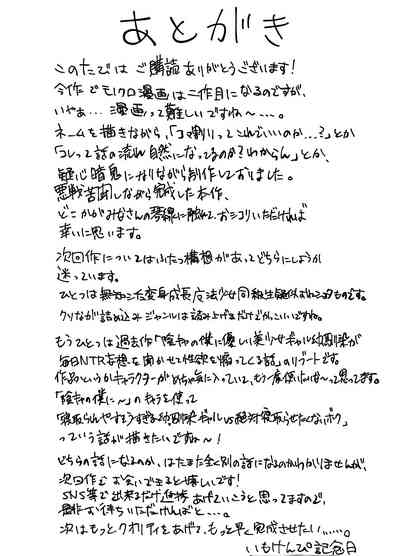 あとがき
このたびはご購読ありがとうございます!
今作でモノクロ漫画は二作目になるのですが、
いやぁ…漫画って難しいですね~…。
ネームを描きながら、「コマ割りってこれでいいのか…?」とか
「コレって話の流れ自然になってるのか?わからん」とか、
疑心暗鬼になりながら制作しておりました。
悪戦苦闘しながら完成した本作、
どこかがみなさんの琴線に触れて、おシコりいただければ
幸いに思います。
次回作についてはふたつ構想があってどちらにしようか
迷っています。
ひとつは無知シチュ変身成長魔法少女同級生疑似おねショタものです。
クソながい詰め込みジャンルは
もうひとつは過去作「陰キャの僕に優しい美少女ギャル幼馴染が
毎日NTR妄想を聞かせて性欲を煽ってくる話」のリブートです。
作品というかキャラクターがめちゃ気に入っていて、もう一度使いたいな~って思ってます。
「陰キャの僕に~」のキャラを使って
「寝取られやすすぎる幼馴染ギャルVS絶対寝取らせたくないボク」
っていう話が描きたいですね~!
どちらの話になるのか、はたまた全く別の話になるのかわかりませんが、
次回作でお会いできると嬉しいです!
SNS等で出来るだけ進捗あげていこうと思ってますので、
お待ちいただければと…。
次はもっとクオリティをあげて、もっと早く完成させたい……。
いもけんぴ記念日